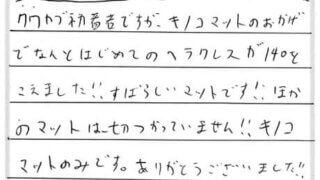 クワカブ初蓄者ですが、キノコマットのおかげ
でなんとはじめてのヘラクレスが140を
こえました!!すばらしいマットです!!ほか
のマットは一切つかっていません!!キノコ
マットのみです。ありがとうございました!!